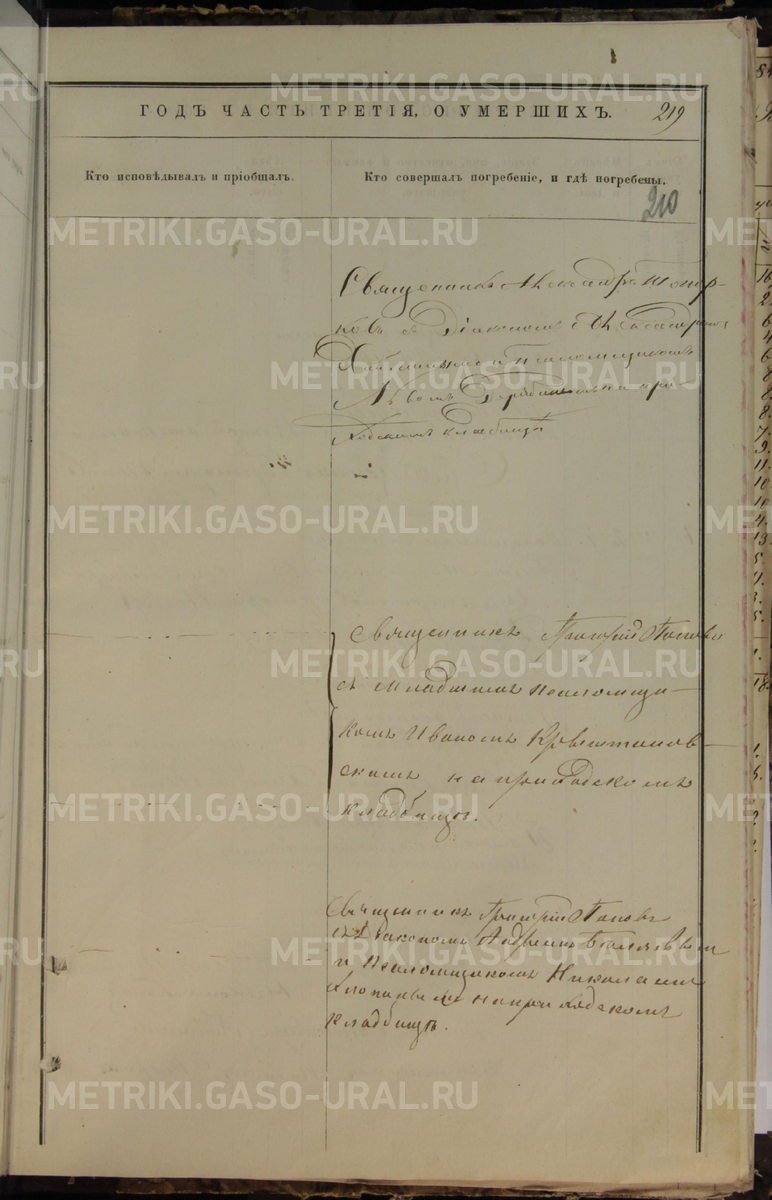 ГОДЪ ЧАСТЬ ТРЕТІЯ, О УМЕРШИХЪ. 219
Кто исповѣдывалъ и пріобщалъ.
Кто совершалъ погребеніе, и гдѣ погребены.
210
Священникъ Александръ Топор-
ковъ съ Діакономъ Александромъ
и псаломщикомъ
Львомъ на при-
ходскомъ кладбищѣ
Священникъ Григорій Поповъ
съ младшимъ псаломщи-
комъ Иваномъ Крыштанов-
скимъ на приходскомъ
кладбищѣ.
Священникъ Григорій Поповъ
съ Діакономъ Андреемъ
и Псаломщикомъ Николаемъ
на приходскомъ
кладбищѣ.
METRIKI.GASO-URAL.RU